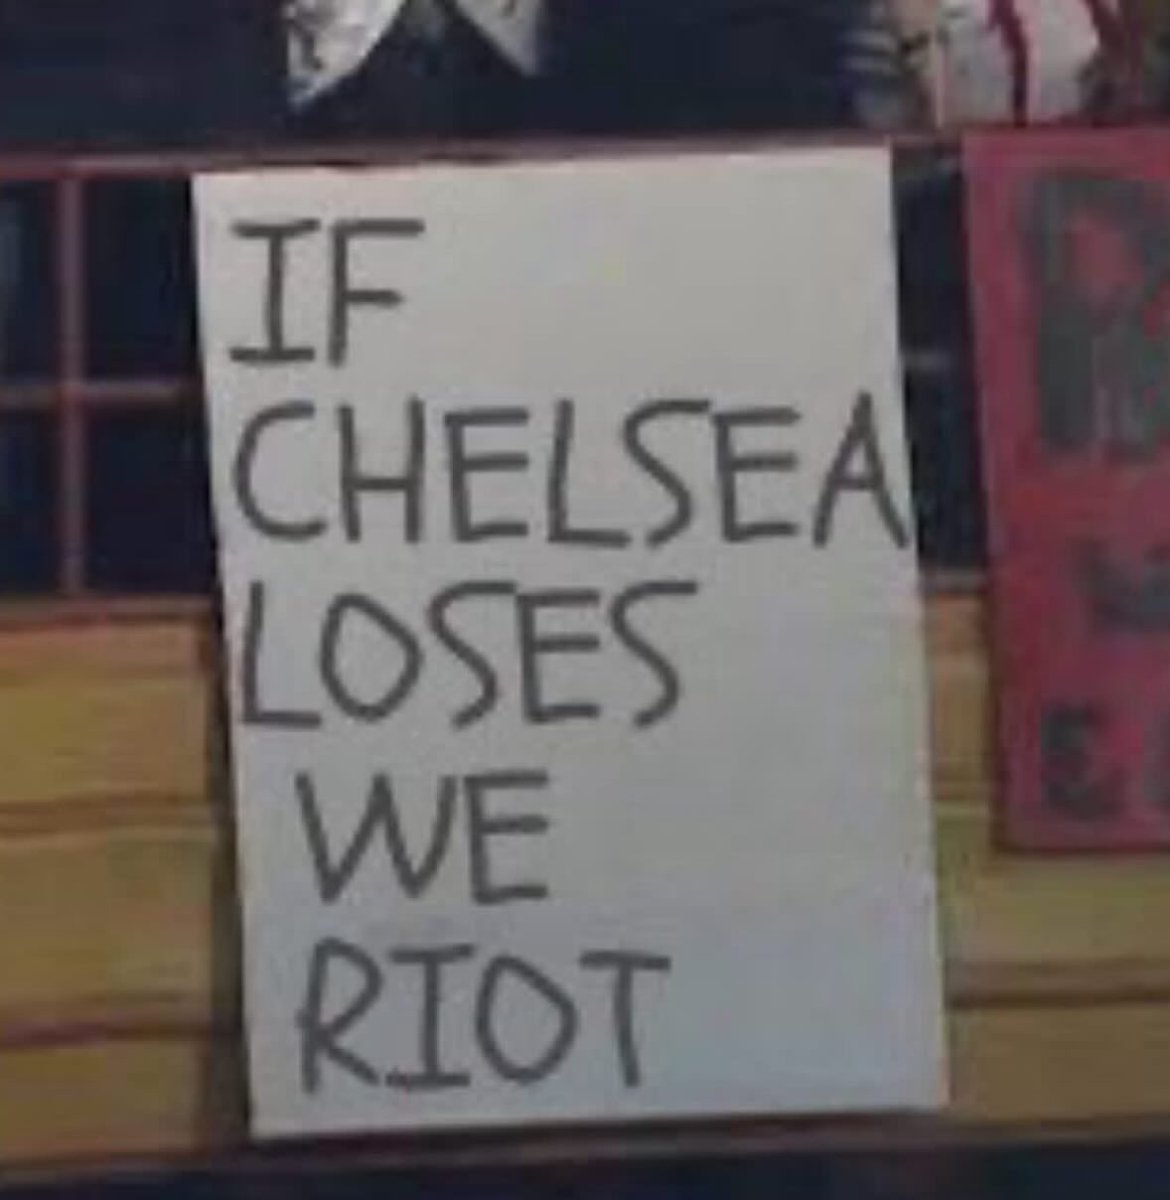 IF
CHELSEA
LOSES
WE
RIOT